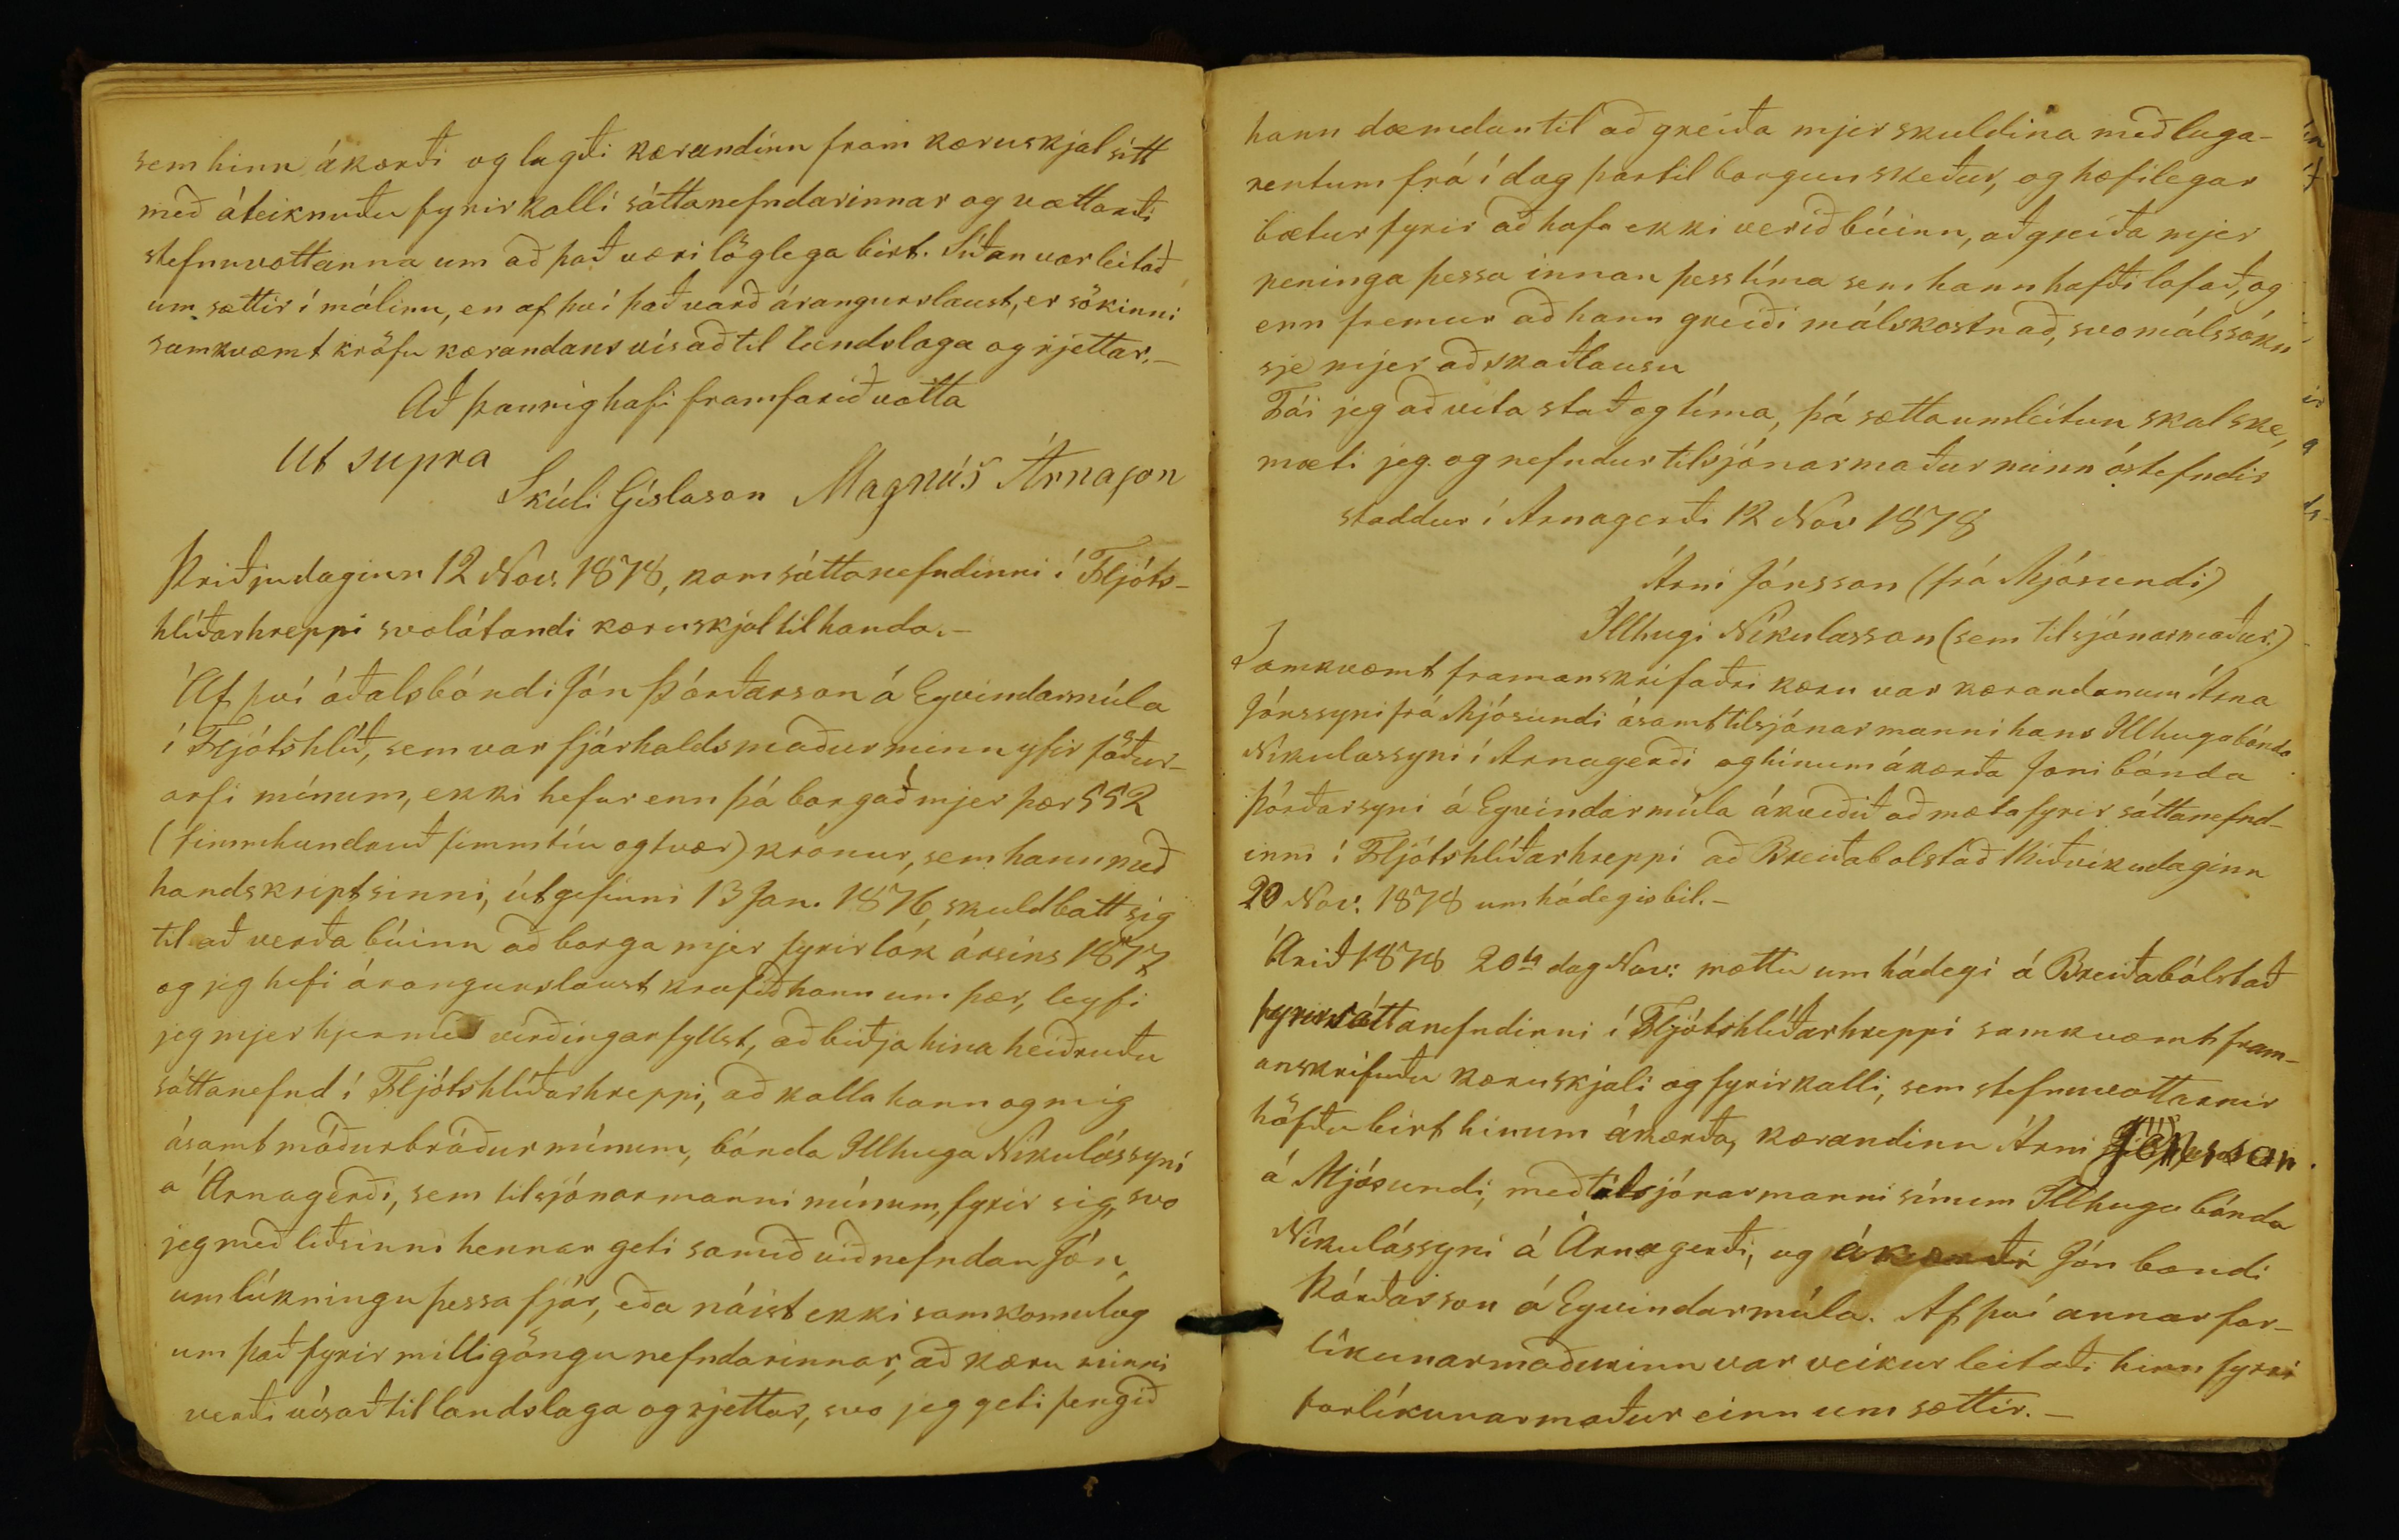 sem hinn ákærði og lagði kærandinn fram kæruskjal sitt
með áteiknuðu fyrirkalli sáttanefndarinnar og vottorði
stefnuvottanna um að það væri löglega birt. Síðan var leitað
um sættir í málinu, en af því það varð árangurslaust, er sökinni
samkvæmt kröfu kærandans vísað til landslaga og rjettar.-
Að þannig hafi framfarið votta
Ut supra
Skúli Gíslason Magnús Árnason
Þriðjudaginn 12 Nov. 1878, kom sáttanefndinni í Fljóts-
hlíðarhreppi svolátandi kæruskjal til handa.-
Af því óðalsbóndi Jón Þórðarson á Eyvindarmúla
í Fljótshlíð, sem var fjárhaldsmaður minn yfir föður-
arfi mínum, ekki hefur enn þá borgað mjer þær 552
(fimmhundruð fimmtíu og tvær) krónur, sem hann með
handskript sinni, útgefinni 13 Jan. 1876, skuldbatt sig
til að verða búinn að borga mjer fyrir lok ársins 1877
og jeg hefi árangurslaust krafið hann um þær, leyfi
jeg mjer hjermeð virðingarfyllst, að biðja hina heiðruðu
sáttanefnd í Fljótshlíðarhreppi, að kalla hann og mig
ásamt móðurbróður mínum, bónda Illhuga Nikulássyni
á Árnagerði, sem tilsjónarmanni mínum, fyrir sig, svo
jeg með liðsinni hennar geti samið við nefndan Jón,
um lúkningu þessa fjár, eða náist ekki samkomulag
um það fyrir milligöngu nefndarinnar, að kæru minni
verði vísað til landslaga og rjettar, svo jeg geti fengið
hann dæmdan til að greiða mjer skuldina með laga-
rentum frá í dag þar til borgun skeður, og hæfilegar
bætur fyrir að hafa ekki verið búinn, að greiða mjer
peninga þessa innan þess tíma sem hann hafði lofað, og
enn fremur að hann greiði málskostnað, svo málssókn
sje mjer að skaðlausu
Fái jeg að vita stað og tíma, þá sættaumleitun skal ske,
mæti jeg og nefndur tilsjónarmaður minn óstefndir
staddur í Arnagerði 12 Nov 1878
Árni Jónsson (frá Mjósundi)
Illhugi Nikulasson (sem tilsjónarmaður.)
Samkvæmt framanskrifaðri kæru var kærandanum Árna
Jónssyni frá Mjósundi ásamt tilsjónarmanni hans Illhuga bónda
Nikulassyni í Arnagerði og hinum ákærða Joni bónda
Þórðarsyni á Eyvindarmúla ákveðið að mæta fyrir sáttanefnd-
inni í Fljótshlíðarhreppi að Breiðabolstað Miðvikudaginn
20 Nov. 1878 um hádegisbil.-
Árið 1878 20ta dag Nov: mættu um hádegi á Breiðabólstað
fyrir sáttanefndinni í Fljótshlíðarhreppi samkvæmt fram-
anskrifuðu kæruskjali og fyrirkalli, sem stefnuvottarnir
höfðu birt hinum ákærða, kærandinn Árni Jónsson
á Mjósundi, með tilsjónarmanni sínum Illhuga bónda
Nikulássyni á Árnagerði, og ákærði Jón bondi
Þórðarson á Eyvindarmúla. Af því annar for-
líkunarmaðurinn var veikur leitaði hinn fyrri
forlíkunarmaður einn um sættir.-